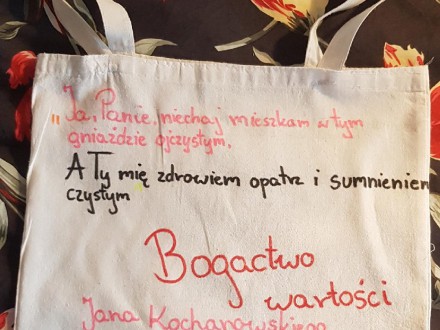 „Ja, Panie, niechaj mieszkam w tym
gniaździe ojczystym,
A Ty mię zdrowiem opatrz i sumnieniem
czystym
Bogactwo
wartości
Jana Kochanowskiego